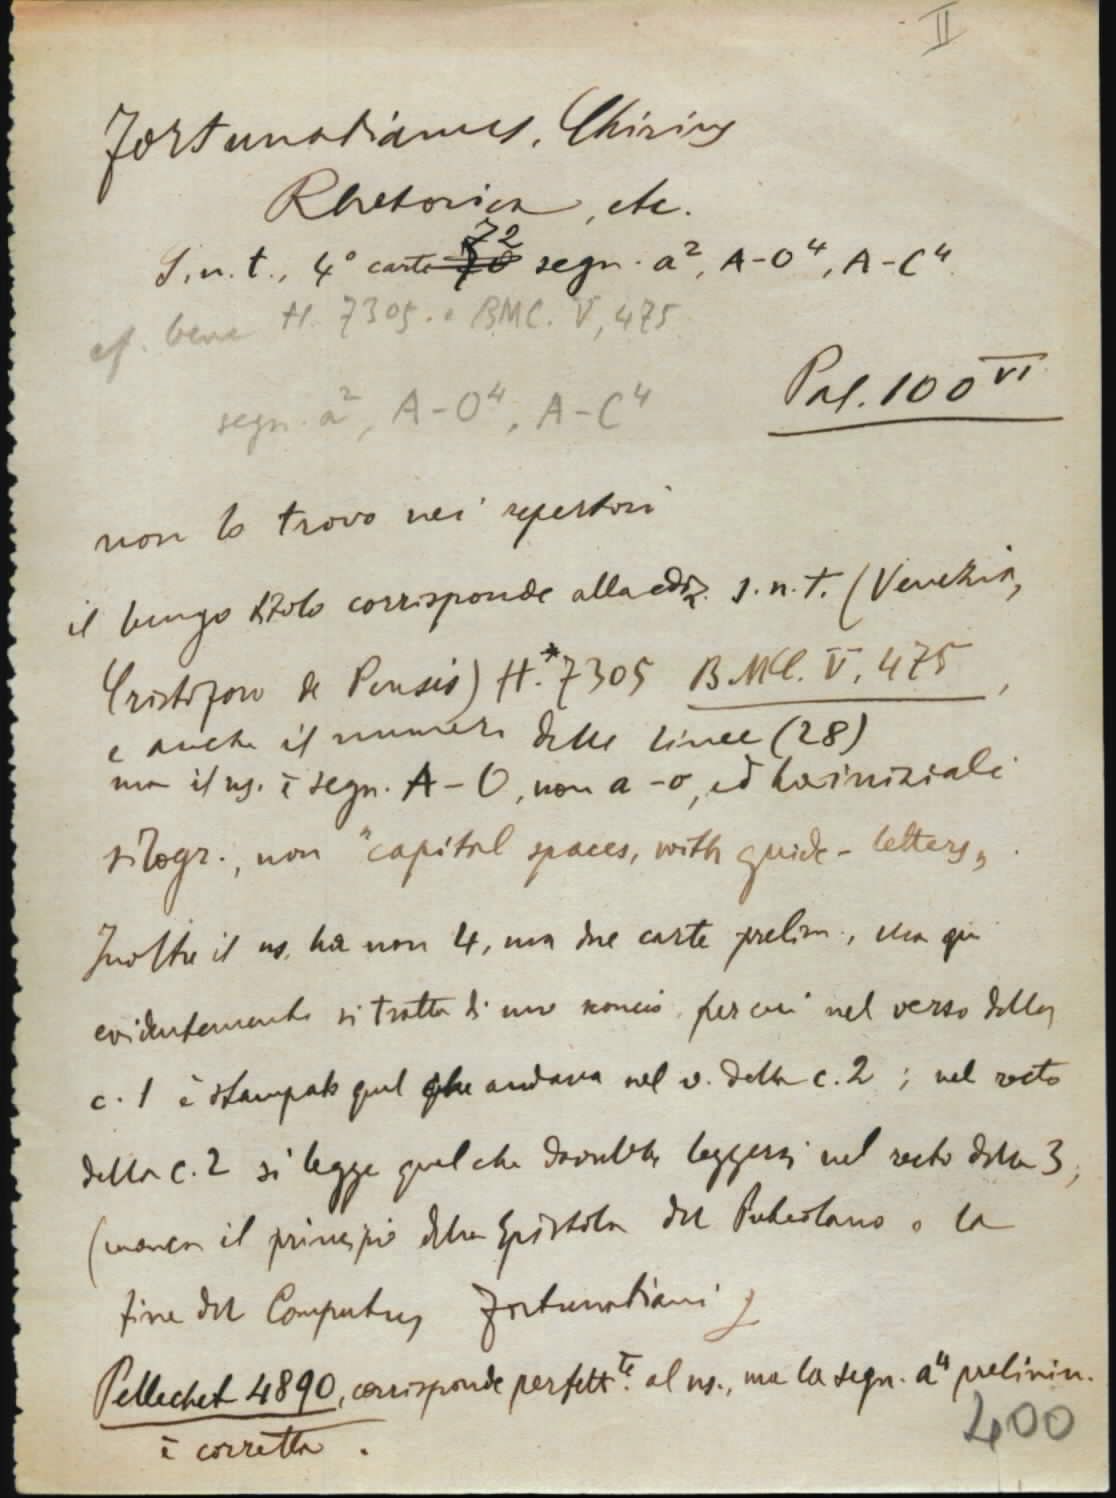 II
Fortunatianus, Chirius
Rhetorica, etc.
S.n.t., 4° carte 70 72 segn. a², A-O⁴, A-C⁴
cf. bene H. 7305. e BMC. V, 475
Pal. 100 VI
segn. a², A-O⁴, A-C⁴
non lo trovo nei repertori
il lungo titolo corrisponde alla ediz. s.n.t. (Venezia,
Cristoforo de Pensis) H.*7305 BMC. V, 475,
e anche il numero delle linee (28)
ma il ns. è segn. A-O, non a-o, ed ha iniziali
silogr., non "capital spaces, with guide-letters„.
Inoltre il ns. ha non 4, ma due carte prelim., ma qui
evidentemente si tratta di uno sconcio per cui nel verso della
c. 1 è stampato quel che andava nel v. della c. 2; nel recto
della c. 2 si legge quel che dovrebbe leggersi nel recto della 3,
(manca il principio della Epistola del Puteolano e la
fine del Computus Fortunatiani)
Pellechet 4890, corrisponde perfettte. al ns., ma la segn. a⁴ prelimin.
è corretta.
400